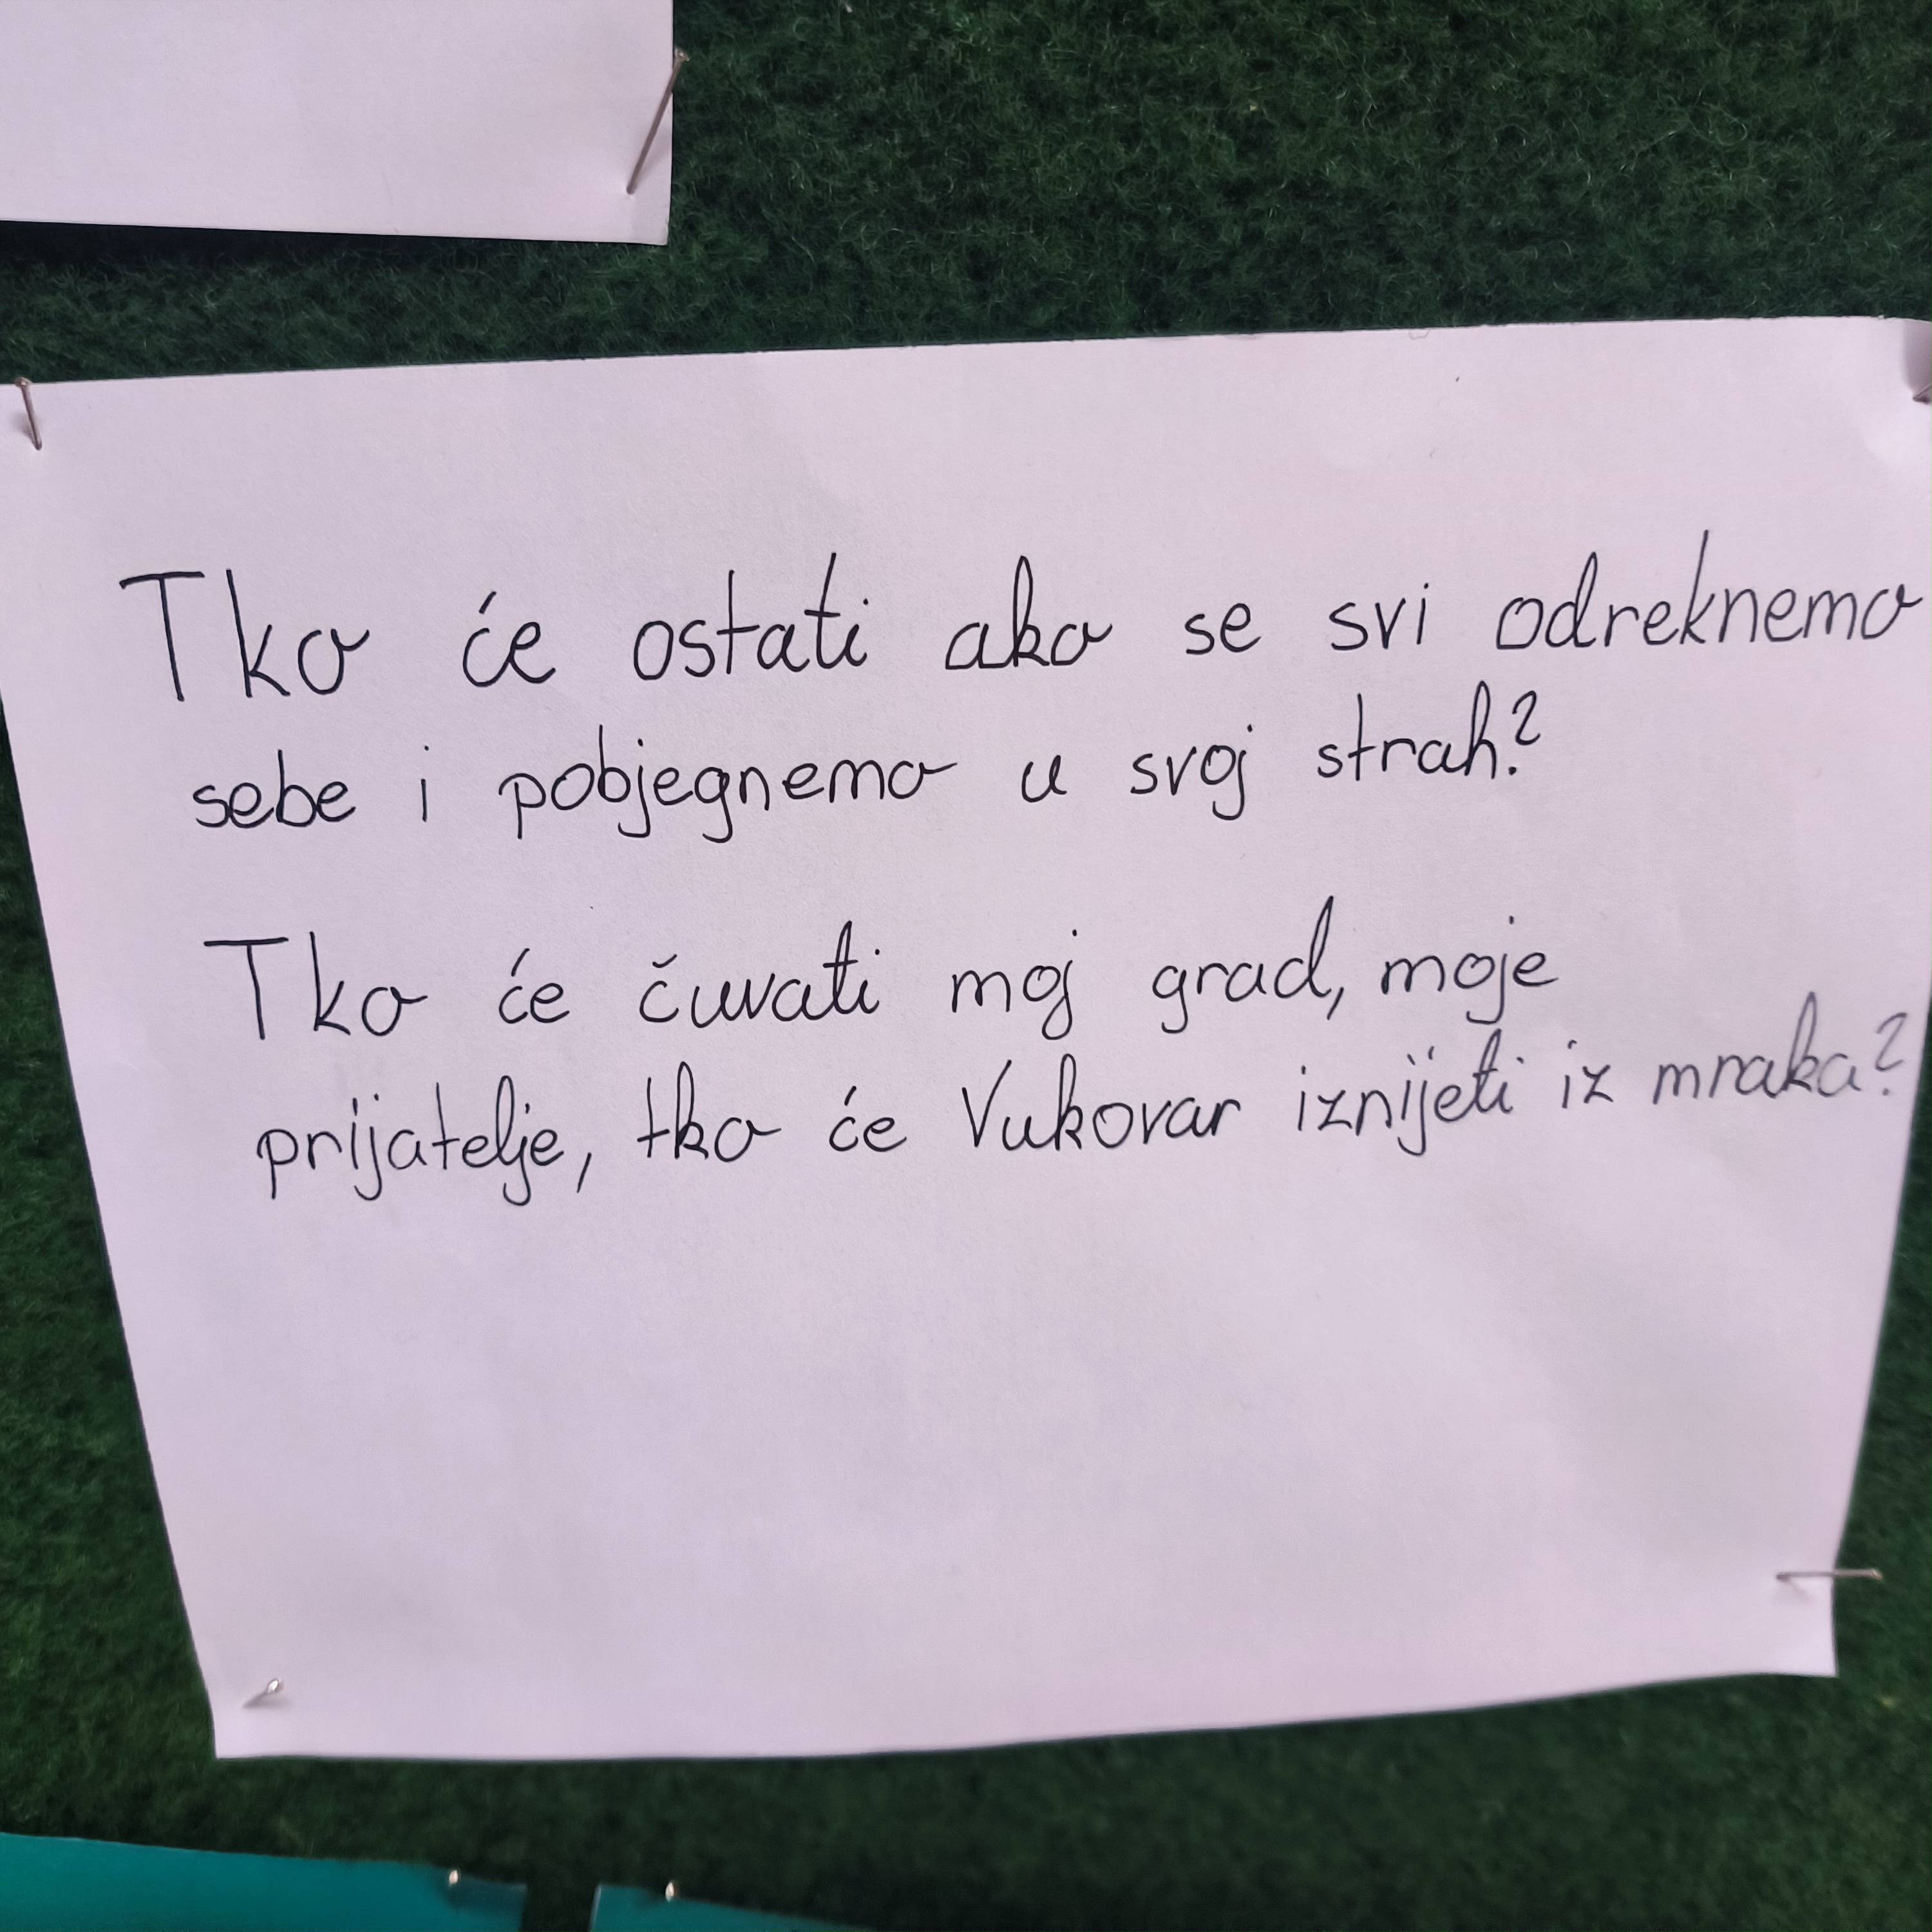 Tko će ostati ako se svi odreknemo
sebe i pobjegnemo u svoj strah?
Tko će čuvati moj grad, moje
prijatelje, tko će Vukovar iznijeti iz mraka?